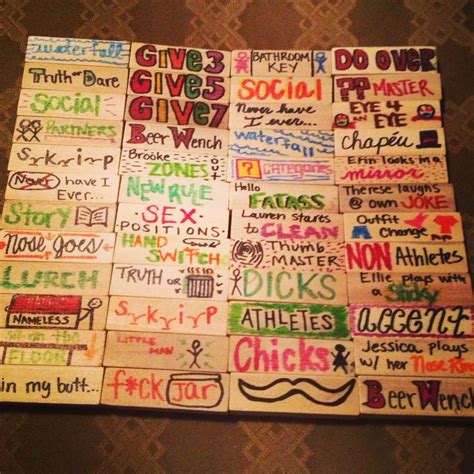 waterfall
Truth or Dare
Social
PARTNERS
S.k.i.p
Never have I
Ever...
Story
Nose Goes
LURCH
NAMELESS
FLOOR
in my butt...
GIVE 3
GIVE 5
GIVE 7
Beer Wench
Brooke
ZONES
NEW RULE
SEX
POSITIONS
HAND
SWITCH
TRUTH or
S.k.i.p
LITTLE
MAN
f*ck JAR
BATHROOM
KEY
SOCIAL
Never have
I ever...
waterfall
? CATEGORIES
Hello
FATASS
Lauren starts
to CLEAN
Thumb
MASTER
DICKS
ATHLETES
Chicks
DO OVER
?? MASTER
EYE 4
AN EYE
chapéu
Erin looks in a
mirror
Therese laughs
@ own JOKE
Outfit
Change
NON Athletes
Ellie plays
with a
accent
Jessica plays
w/ her Nose Ring
Beer Wench